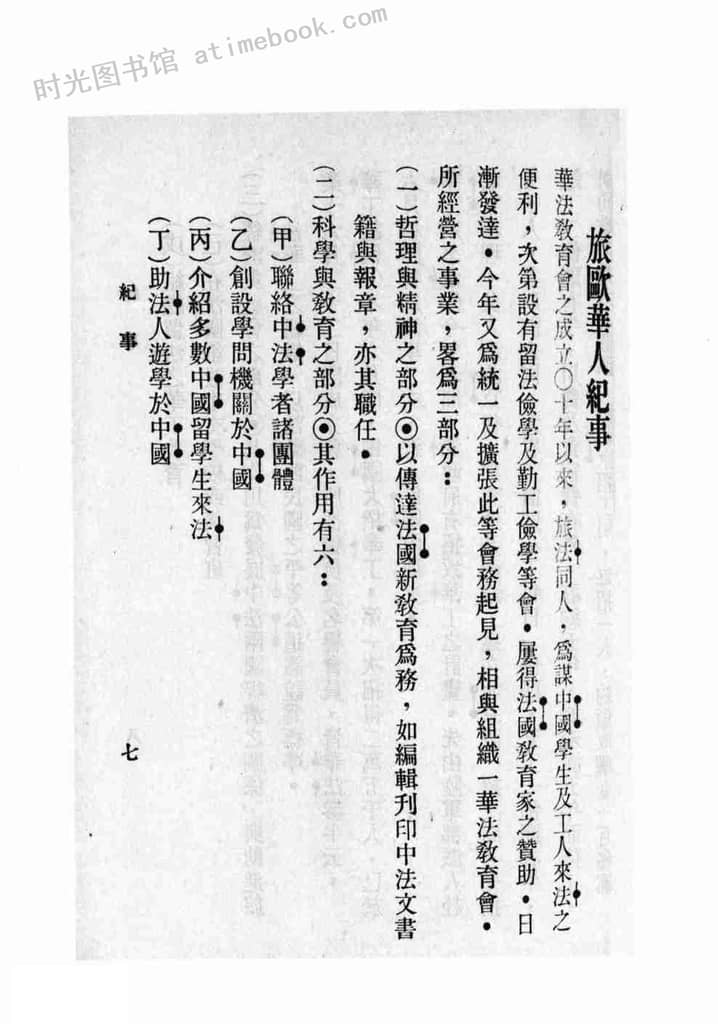 时光图书馆 atimebook.com
旅歐華人紀事
華法敎育會之成立〇十年以來，旅法同人，爲謀中國學生及工人來法之
便利，次第設有留法儉學及勤工儉學等會。屢得法國敎育家之贊助。日
漸發達。今年又爲統一及擴張此等會務起見，相與組織一華法敎育會。
所經營之事業，畧爲三部分：
（一）哲理與精神之部分◉以傳達法國新敎育爲務，如編輯刊印中法文書
籍與報章，亦其職任。
（二）科學與敎育之部分◉其作用有六：
（甲）聯絡中法學者諸團體
（乙）創設學問機關於中國
（丙）介紹多數中國留學生來法
（丁）助法人遊學於中國
紀事
七